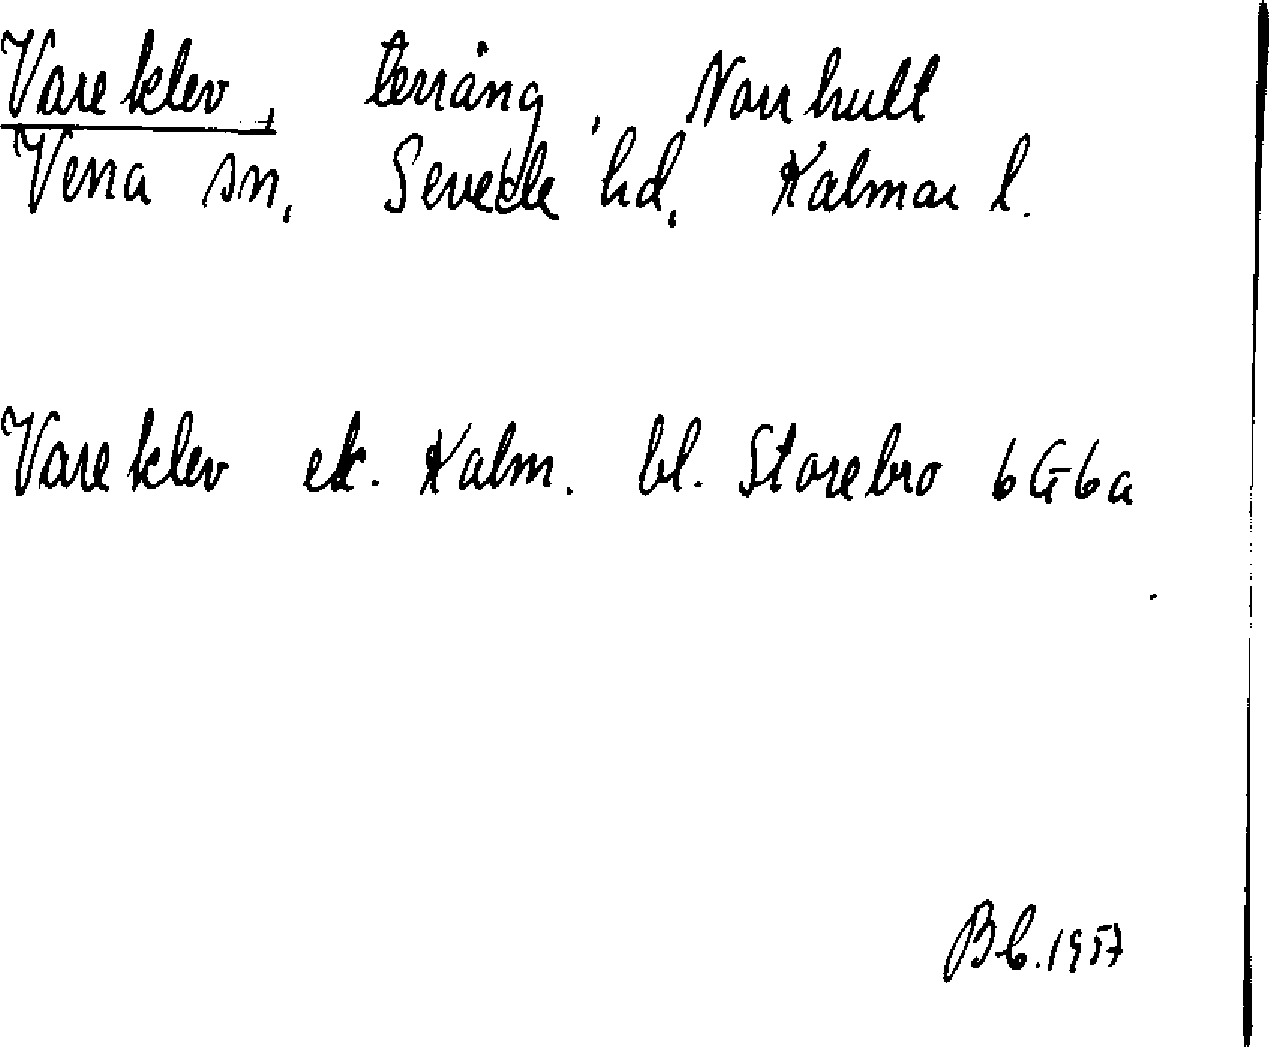 Vareklev, terräng, Norrhult
Vena sn, Sevede hd, Kalmar l.
Vareklev ek. Kalm. bl. Storebro 6G6a
Bb. 1957